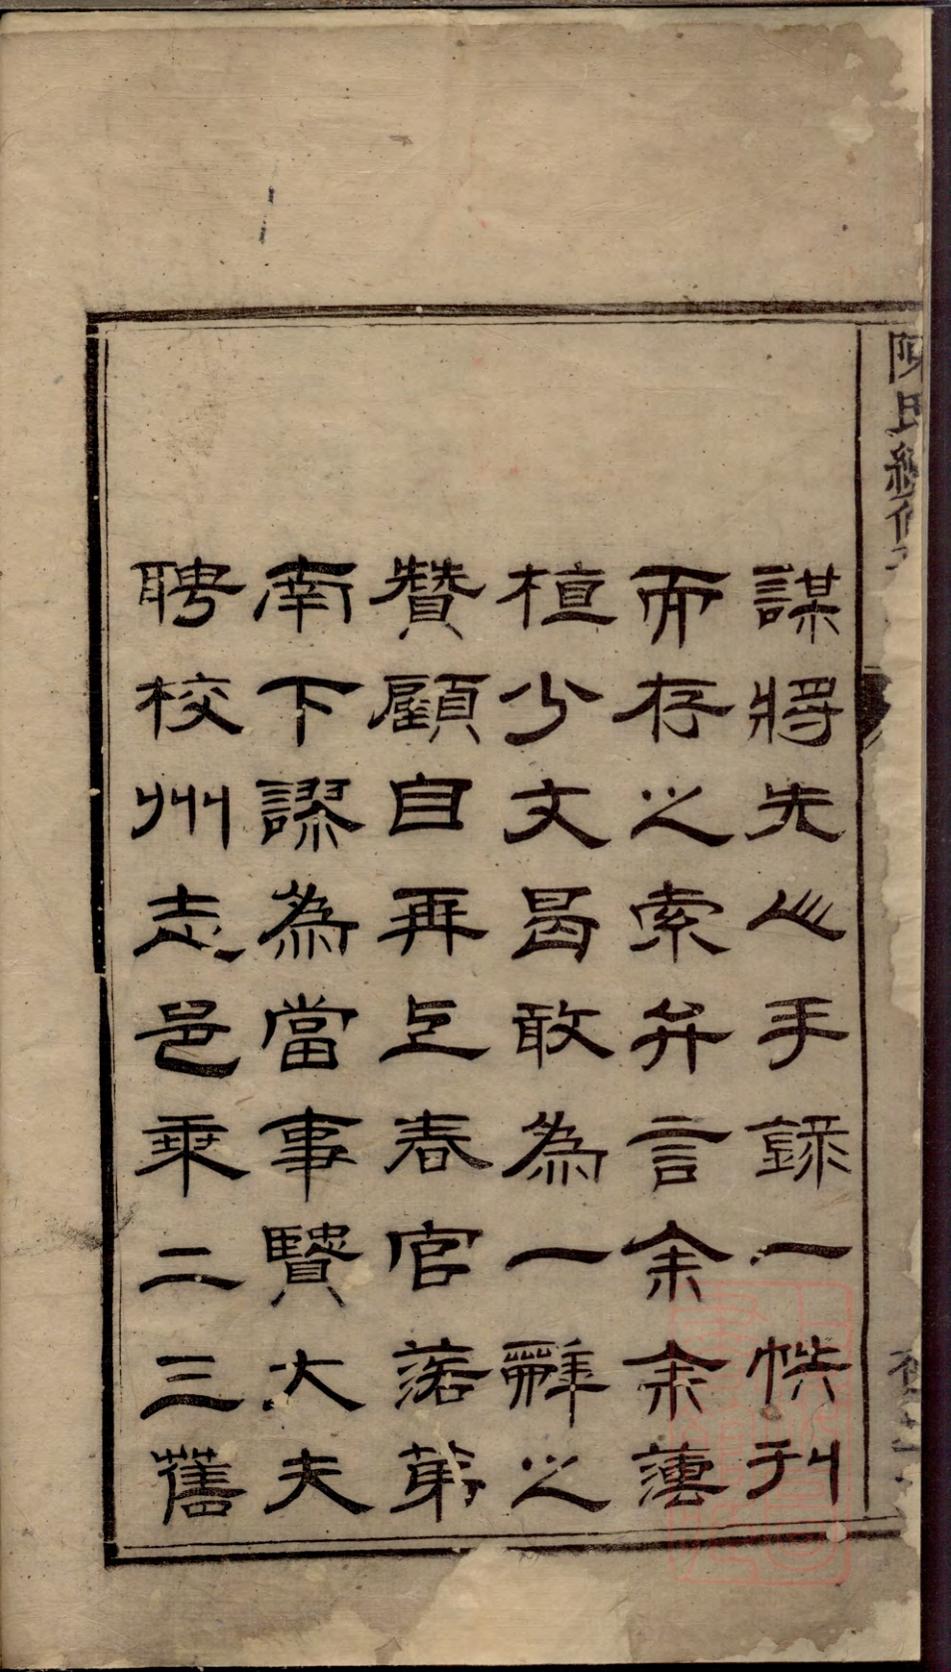 謀將先心手錄一帙刊
而存之索弁言余余薄
植少文曷敢為一辭之
贊顧自再上春官落第
南下謬為當事賢大夫
聘校州志邑乘二三舊